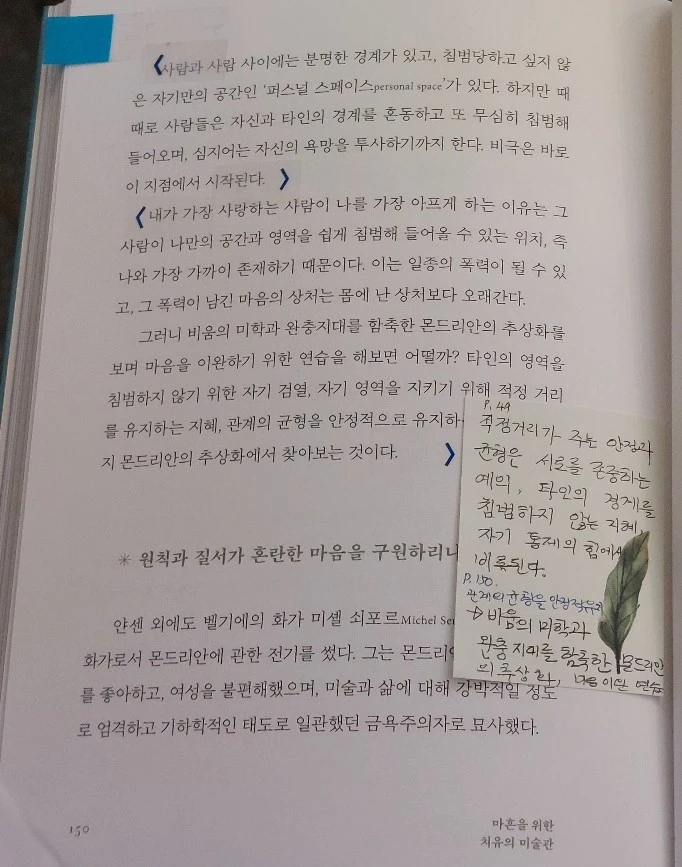 사람과 사람 사이에는 분명한 경계가 있고, 침범당하고 싶지 않
은 자기만의 공간인 '퍼스널 스페이스personal space'가 있다. 하지만 때
때로 사람들은 자신과 타인의 경계를 혼동하고 또 무심히 침범해
들어오며, 심지어는 자신의 욕망을 투사하기까지 한다. 비극은 바로
이 지점에서 시작된다.
내가 가장 사랑하는 사람이 나를 가장 아프게 하는 이유는 그
사람이 나만의 공간과 영역을 쉽게 침범해 들어올 수 있는 위치, 즉
나와 가장 가까이 존재하기 때문이다. 이는 일종의 폭력이 될 수 있
고, 그 폭력이 남긴 마음의 상처는 몸에 난 상처보다 오래간다.
그러니 비움의 미학과 완충지대를 함축한 몬드리안의 추상화를
보며 마음을 이완하기 위한 연습을 해보면 어떨까? 타인의 영역을
침범하지 않기 위한 자기 검열, 자기 영역을 지키기 위해 적정 거리
를 유지하는 지혜, 관계의 균형을 안정적으로 유지하
지 몬드리안의 추상화에서 찾아보는 것이다.
✳ 원칙과 질서가 혼란한 마음을 구원하리니
얀센 외에도 벨기에의 화가 미셸 쇠포르Michel Se
화가로서 몬드리안에 관한 전기를 썼다. 그는 몬드리
를 좋아하고, 여성을 불편해했으며, 미술과 삶에 대해 강박적일 정도
로 엄격하고 기하학적인 태도로 일관했던 금욕주의자로 묘사했다.
P. 49
적정거리가 주는 안정과
균형은 서로를 존중하는
예의, 타인의 경계를
침범하지 않는 지혜,
자기 통제의 힘에서
비롯된다.
P. 150.
관계의 균형을 안정적 유지
→ 비움의 미학과
완충지대를 함축한 몬드리안
의 추상화, 마음 이완 연습
150
마흔을 위한
치유의 미술관